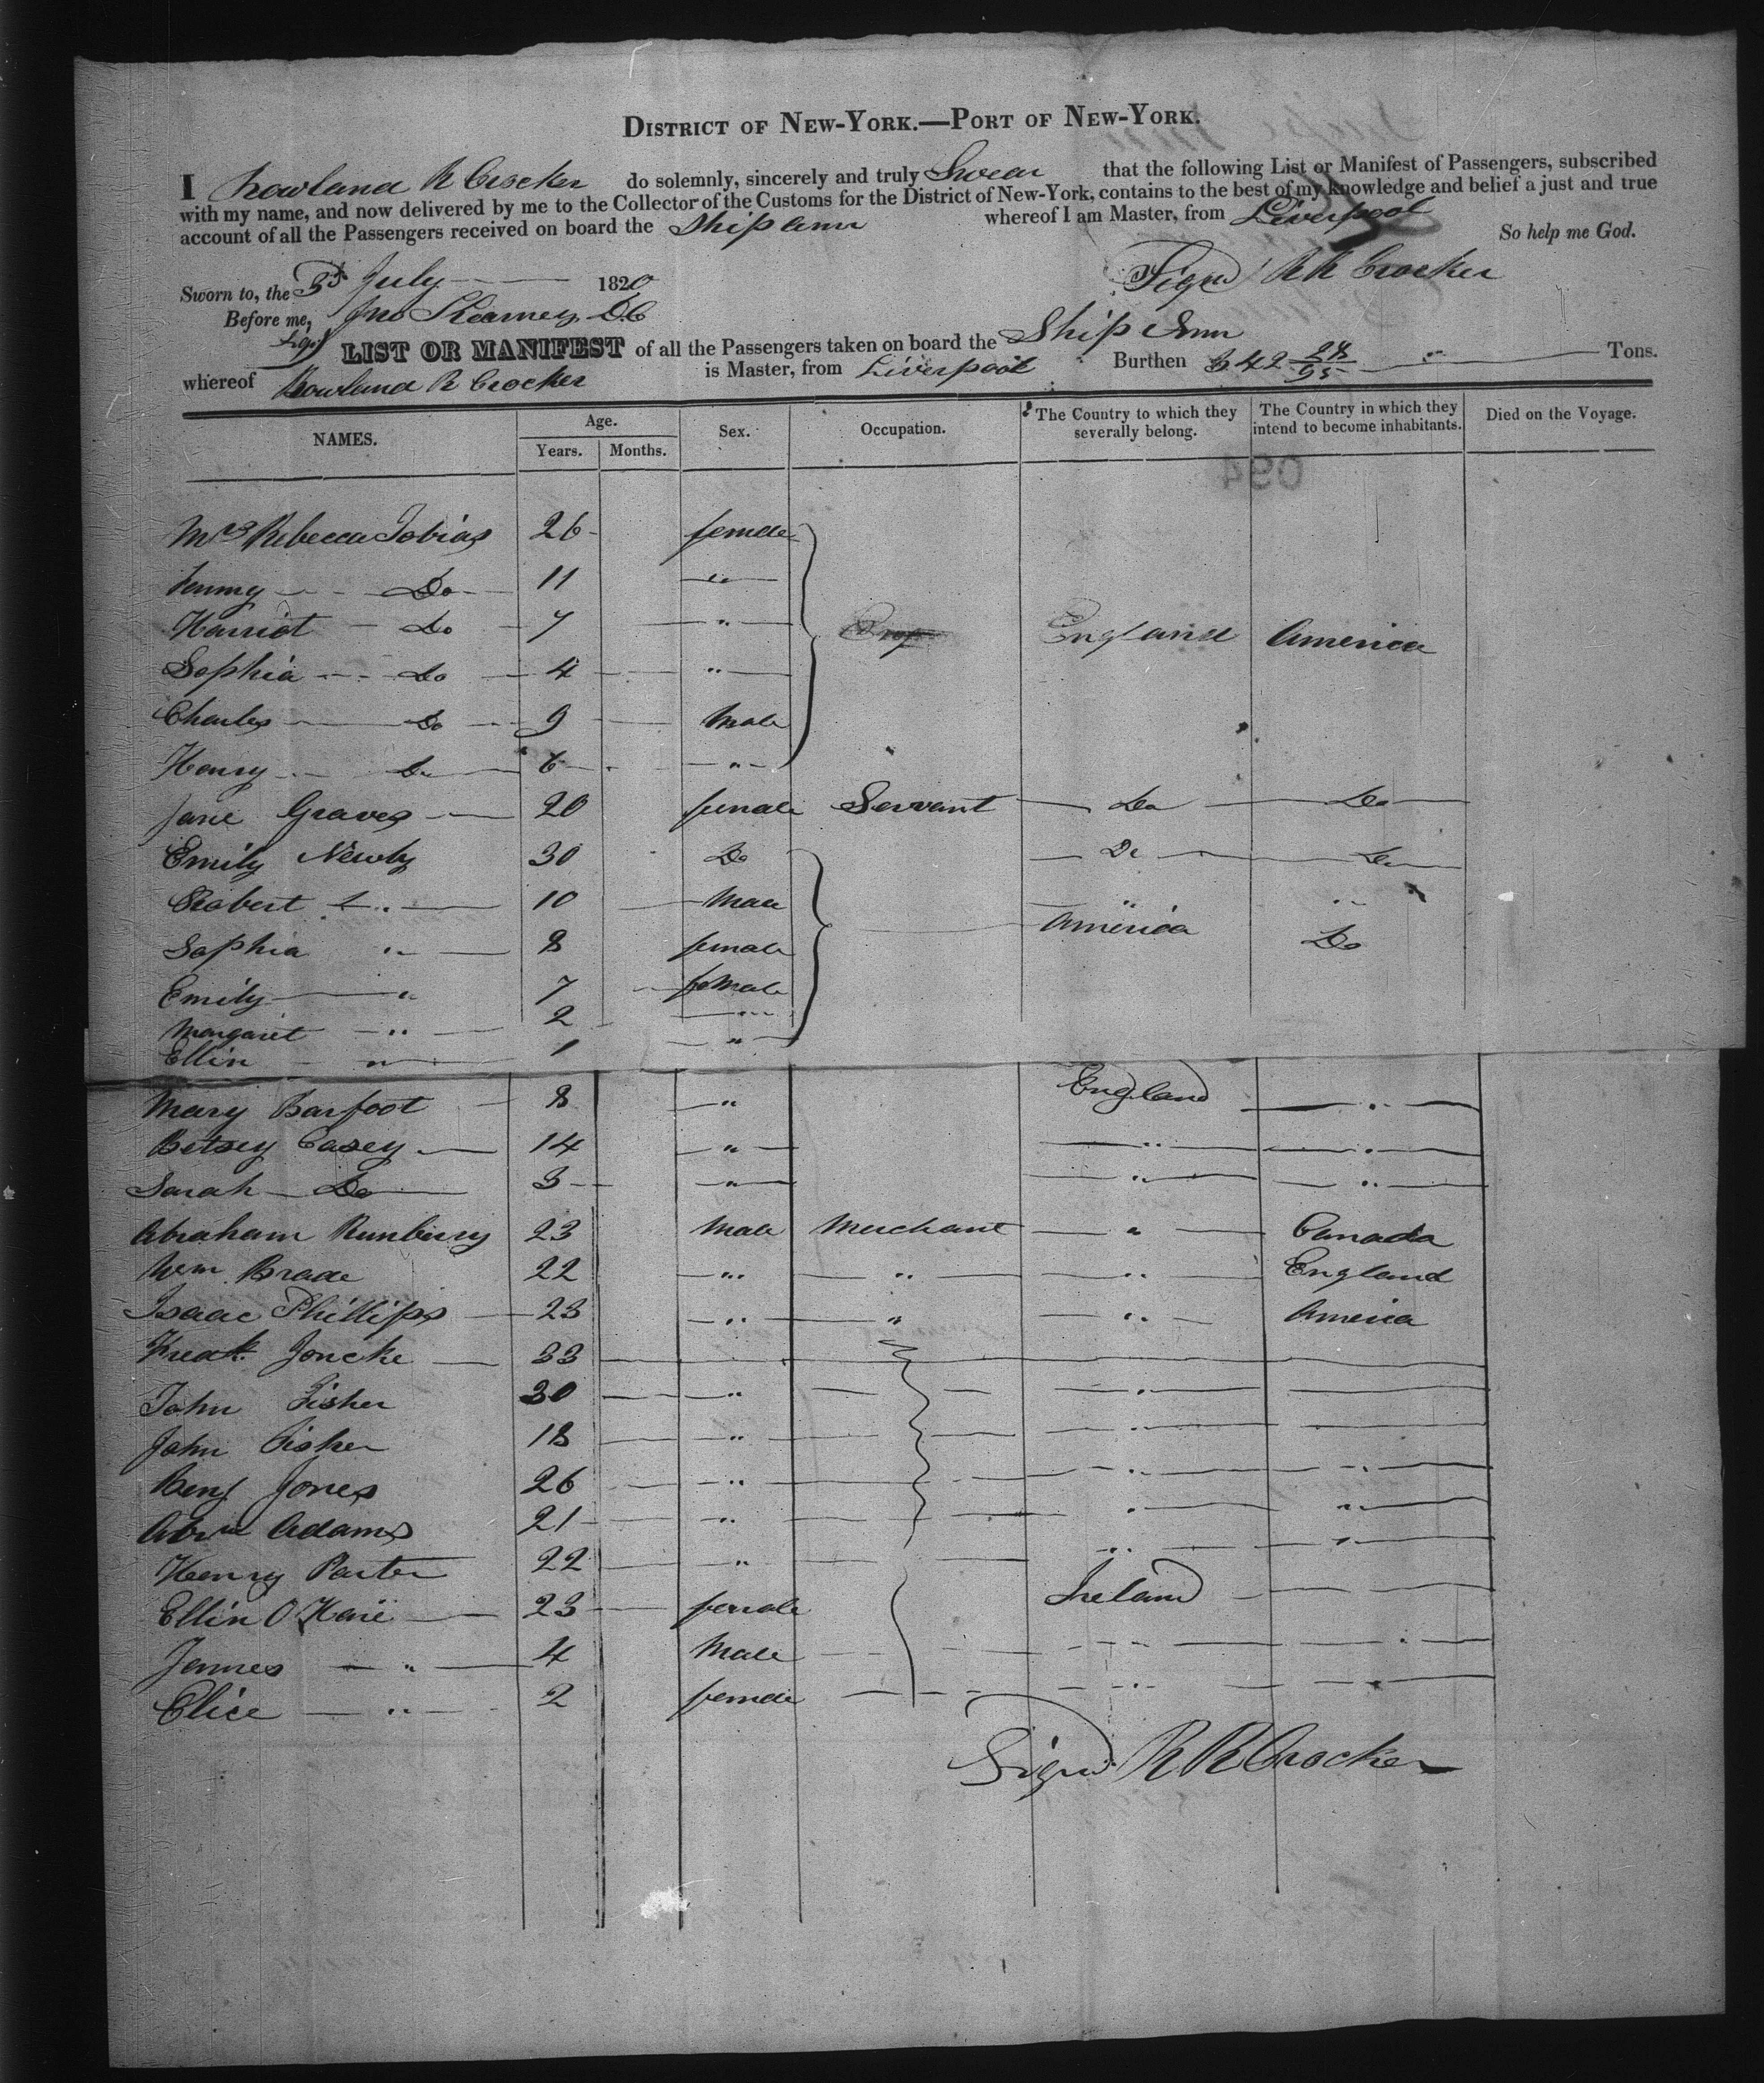 DISTRICT OF NEW-YORK.—PORT OF NEW-YORK.
I Rowland R Crocker do solemnly, sincerely and truly Swear that the following List or Manifest of Passengers, subscribed
with my name, and now delivered by me to the Collector of the Customs for the District of New-York, contains to the best of my knowledge and belief a just and true
account of all the Passengers received on board the Ship Ann whereof I am Master, from Liverpool
So help me God.
Sworn to, the 3d July 1820 Signd R R Crocker
Before me, Jno Kearney D.C
LIST OR MANIFEST of all the Passengers taken on board the Ship Ann
whereof Rowland R Crocker is Master, from Liverpool Burthen 342 28/95 " Tons.
NAMES. Age. Years. Months. Sex. Occupation. The Country to which they severally belong. The Country in which they intend to become inhabitants. Died on the Voyage.
094
Mrs Rebecca Tobias 26 female
Fanny Do 11 Do
Harriot Do 7 " England America
Sophia Do 4 "
Charles Do 9 Male
Henry Do 6 "
Jane Graves 20 female Servant Do Do
Emily Newby 30 Do Do Do
Robert " 10 Male " "
Sophia " 8 female America Do
Emily " 7 female
Margaret " 2 "
Ellin " 1 "
Mary Barfoot 8 " England "
Betsey Casey 14 " " "
Sarah Do 3 " " "
Abraham 23 Male Merchant " Canada
Wm Brade 22 " " " England
Isaac Phillips 23 " " " America
Fredk Joncke 33
John Fisher 30 " "
John Fisher 18 " "
Benj Jones 26 " " "
Abm Adams 21 " " "
Henry Porter 22 " " "
Ellin O Kane 23 female Ireland
James " 4 Male " "
Elice " 2 female " "
Signd R R Crocker